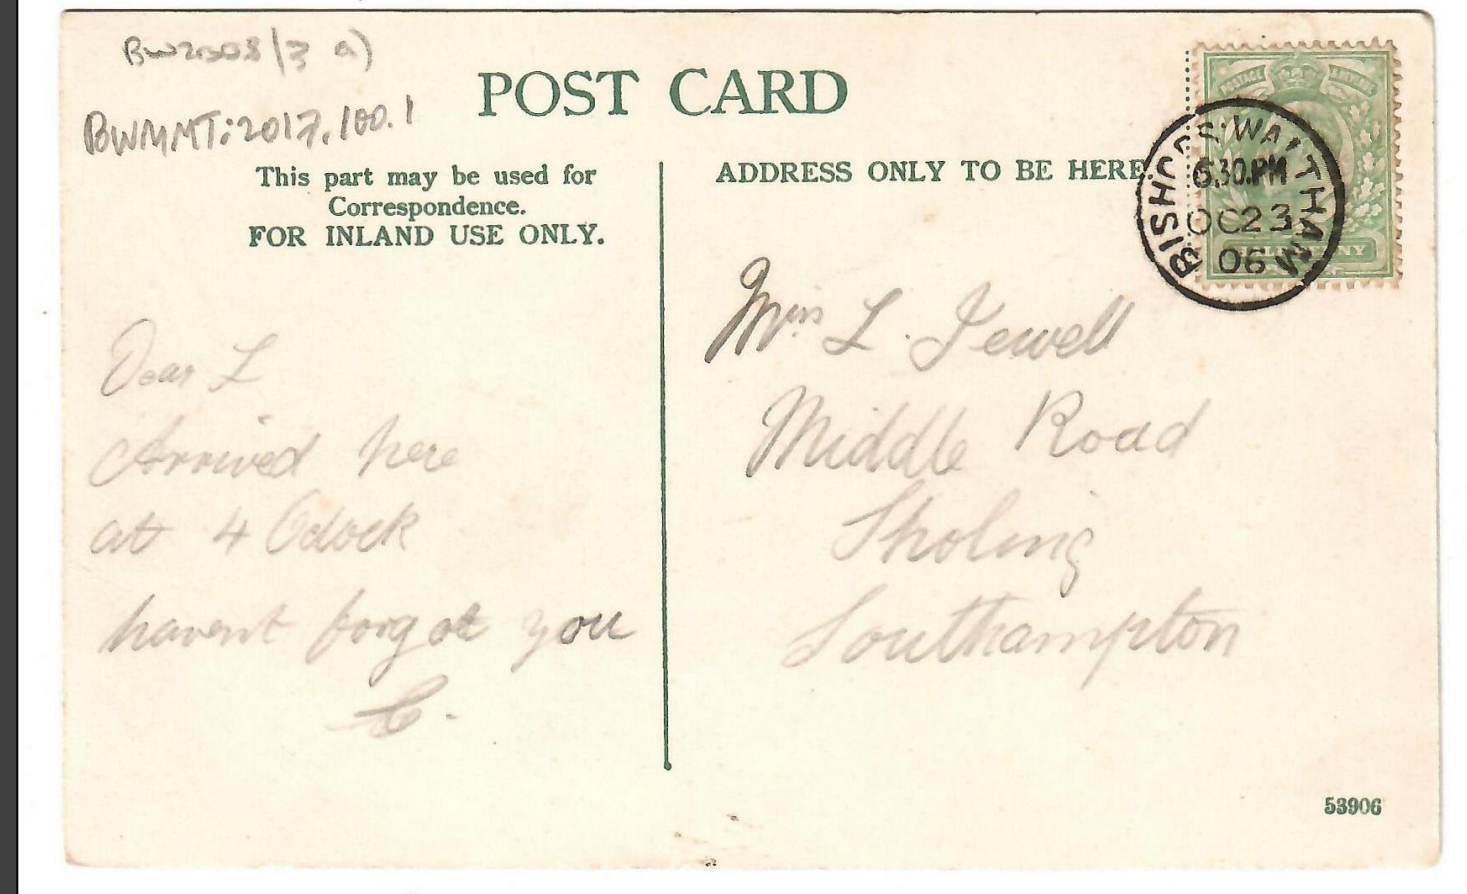 BW2003/3 a)
BWMMT:2017.100.1
POST CARD
This part may be used for
Correspondence.
FOR INLAND USE ONLY.
ADDRESS ONLY TO BE HERE.
BISHOPS WALTHAM
6.30.PM
OC 23
06
POSTAGE
Dear L
Arrived here
at 4 Oclock
havent forgot you
Miss L. Jewell
Middle Road
Sholing
Southampton
53906